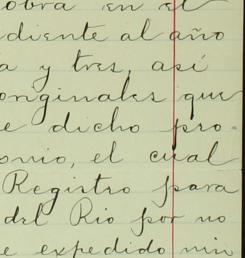 obra en el
diente al año
a y tres, así
originales que
e dicho pro-
onio, el cual
Registro para
del Rio por no
e expedido nin